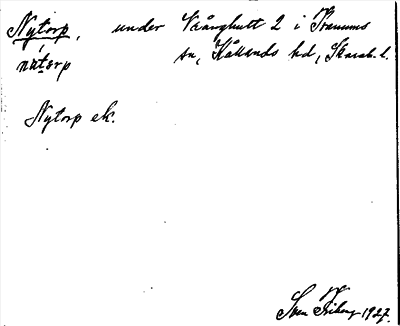 Nytorp, under Vrånghult 2 i Tranums
nýtǝrp sn, Kållands hd, Skarab. l.
Nytorp ek.
Sven Friberg 1927.